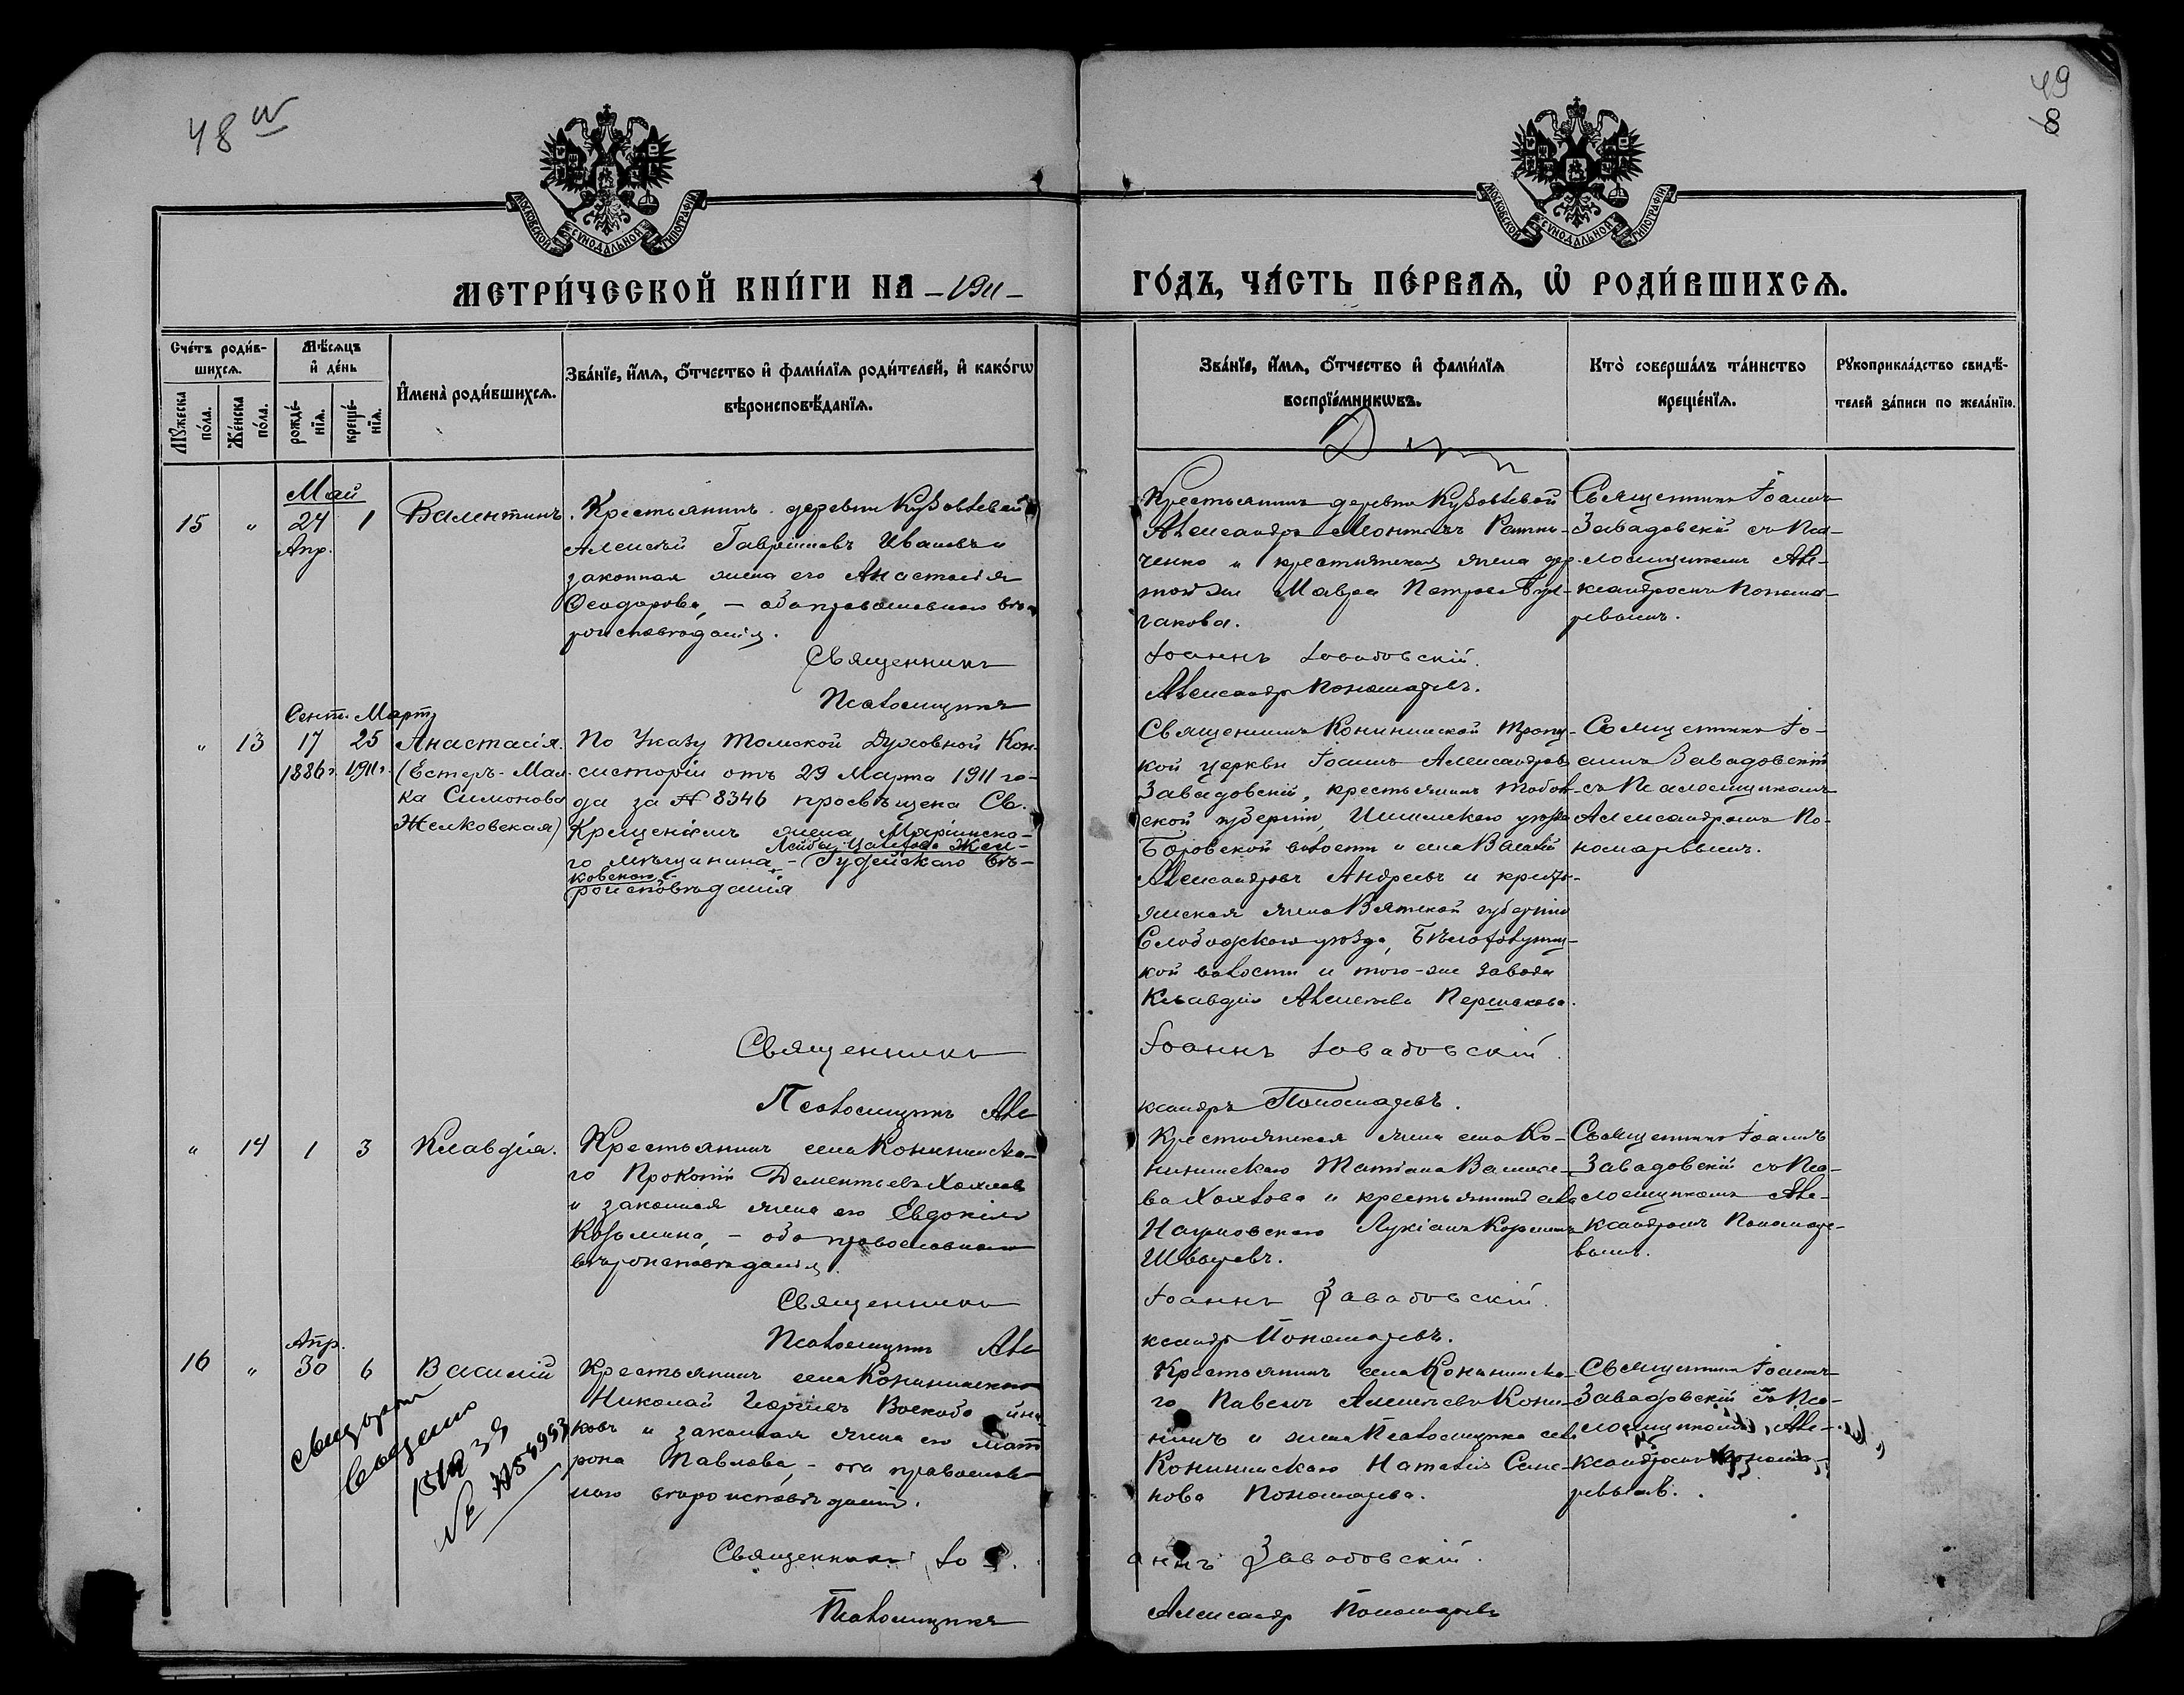 48
49
8
МОСКОВСКОЙ СУНОДАЛЬНОЙ ТИПОГРАФІИ
МОСКОВСКОЙ СУНОДАЛЬНОЙ ТИПОГРАФІИ
МЕТРИ́ЧЕСКОЙ КНИ́ГИ НА -1911-
ГО́ДЪ, ЧА́СТЬ ПЕ́РВАѦ, Ѡ҆ РОДИ́ВШИХСѦ.
Сче́тъ роди́в-
шихсѧ.
Мꙋ́жеска
по́ла.
Же́нска
по́ла.
Мѣ́сѧцъ
и҆ де́нь
рожде́-
нїѧ.
креще́-
нїѧ.
И҆мена̀ роди́вшихсѧ.
Зва́нїе, и҆́мѧ, ѻ҆́тчество и҆ фами́лїѧ роди́телей, и҆ како́гѡ
вѣроисповѣ́данїѧ.
Зва́нїе, и҆́мѧ, ѻ҆́тчество и҆ фами́лїѧ
воспрїе́мникѡвъ.
Кто̀ соверша́лъ та́инство
креще́нїѧ.
Рꙋкоприкла́дство свидѣ́-
телей за́писи по жела́нїю.
Май
15 " 24 1 Валентинъ.
Апр.
Крестьянинъ деревни Кузовлевой
Алексѣй Гавріиловъ Ивановъ и
законная жена его Анастасія
Ѳеодорова, - оба православнаго вѣ-
роисповѣданія.
Священникъ
Псаломщикъ
Крестьянинъ деревни Кузовлевой
Александръ
ченко и крестьянская жена дер.
той же Мавра Петрова
гакова.
Іоаннъ Завадовскій.
Александръ Пономаревъ.
Священникъ Іоаннъ
Завадовскій съ Пса-
ломщикомъ Але-
ксандромъ Понома-
ревымъ.
Сент. Март.
" 13 17 25 Анастасія.
1886 г. 1911 г. (Естеръ-Мал-
ка Симонова
Желковская)
По Указу Томской Духовной Кон-
систоріи отъ 29 Марта 1911 го-
да за № 8346 просвѣщена Св.
Крещеніемъ жена Маріинска-
го мѣщанина Лейбы Жел-
ковскаго - Іудейскаго вѣ-
роисповѣданія
Священникъ
Псаломщикъ Але-
Священникъ Конининской Троиц-
кой церкви Іоаннъ Александровъ
Завадовскій, крестьянинъ Тоболь-
ской губерніи, Ишимскаго уѣзда
Боровской волости и села Василій
Александровъ Андреевъ и кресть-
янская жена Вятской губерніи
Слободскаго уѣзда, Бѣлохолуниц-
кой волости и того-же завода
Клавдія Алексѣева Першакова.
Іоаннъ Завадовскій.
ксандръ Пономаревъ.
Священникъ Іо-
аннъ Завадовскій
съ Псаломщикомъ
Александромъ По-
номаревымъ.
" 14 1 3 Клавдія.
Крестьянинъ села Конининска-
го Прокопій Дементьевъ Хохлов
и законная жена его Евдокія
Козьмина, - оба православнаго
вѣроисповѣданія.
Священникъ
Псаломщикъ Але-
Крестьянская жена села Ко-
нининскаго Татіана Василье-
ва Хохлова и крестьянинъ села
Наумовскаго Лукіанъ
Швыревъ.
Іоаннъ Завадовскій.
ксандръ Пономаревъ.
Священникъ Іоаннъ
Завадовскій съ Пса-
ломщикомъ Але-
ксандромъ Пономаре-
вымъ.
Апр.
16 " 30 6 Василій
Крестьянинъ села Конининскаго
Николай Георгіевъ Воскобойни-
ковъ и законная жена его Мат-
рона Павлова, - оба православ-
наго вѣроисповѣданія.
Священникъ Іо-
Псаломщикъ
Крестьянинъ села Конининска-
го Павелъ Алексѣевъ Кони-
нинъ и жена Псаломщика села
Конининскаго Наталія Семе-
нова Пономарева.
аннъ Завадовскій.
Александръ Пономаревъ
Священникъ Іоаннъ
Завадовскій съ Пса-
ломщикомъ Але-
ксандромъ Понома-
ревымъ.